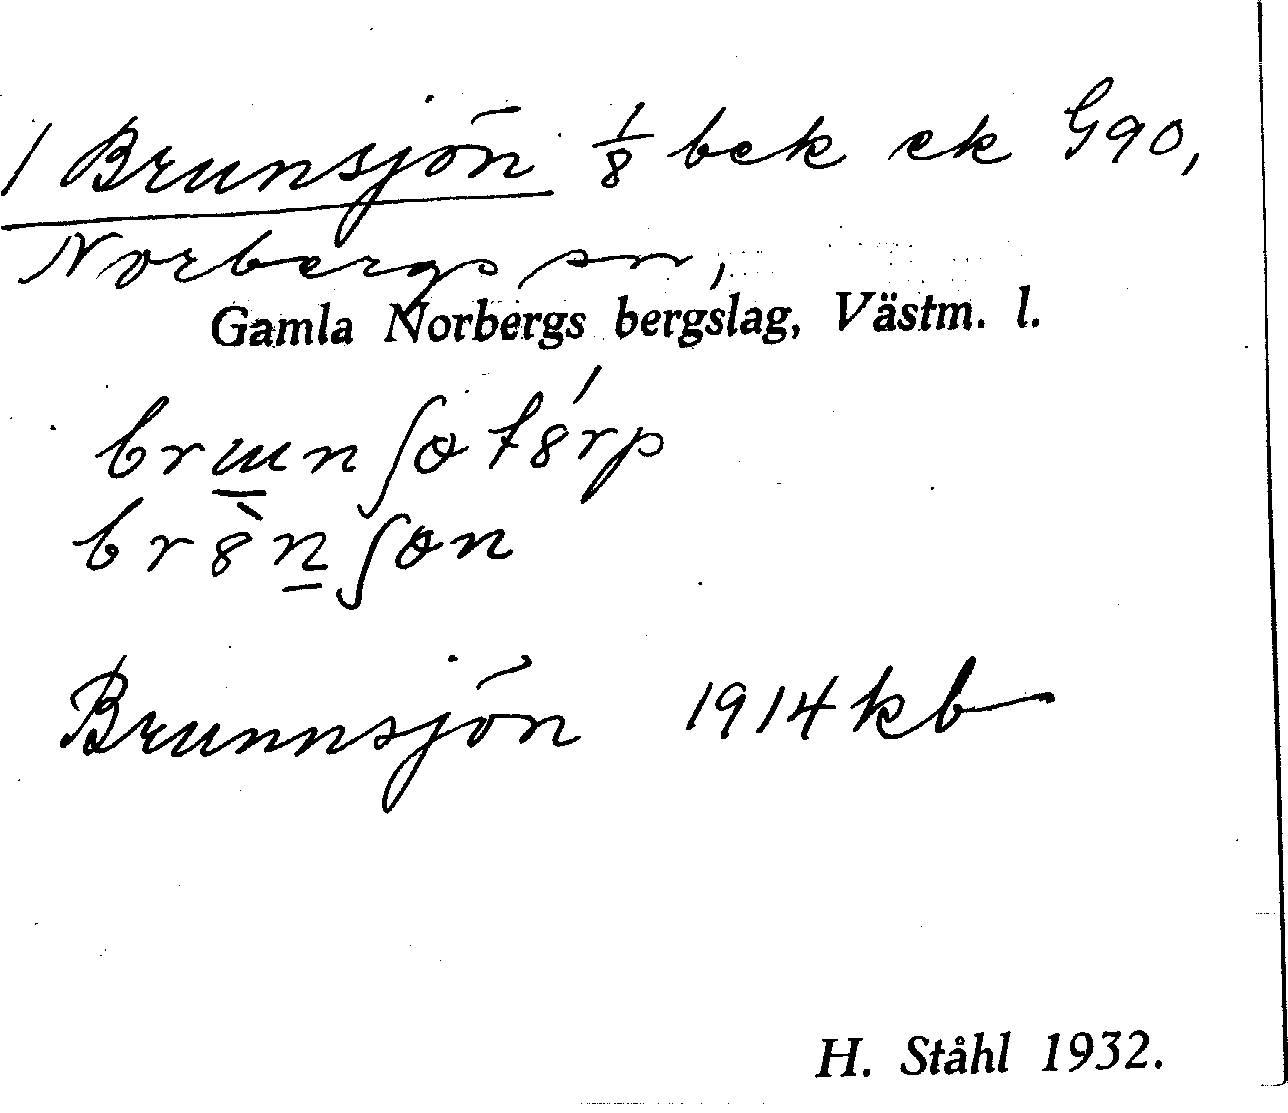 1 Brunsjön 1/8 bek ek G90,
Norbergs sn,
Gamla Norbergs bergslag, Västm. l.
Brunnsjön 1914 kb
H. Ståhl 1932.